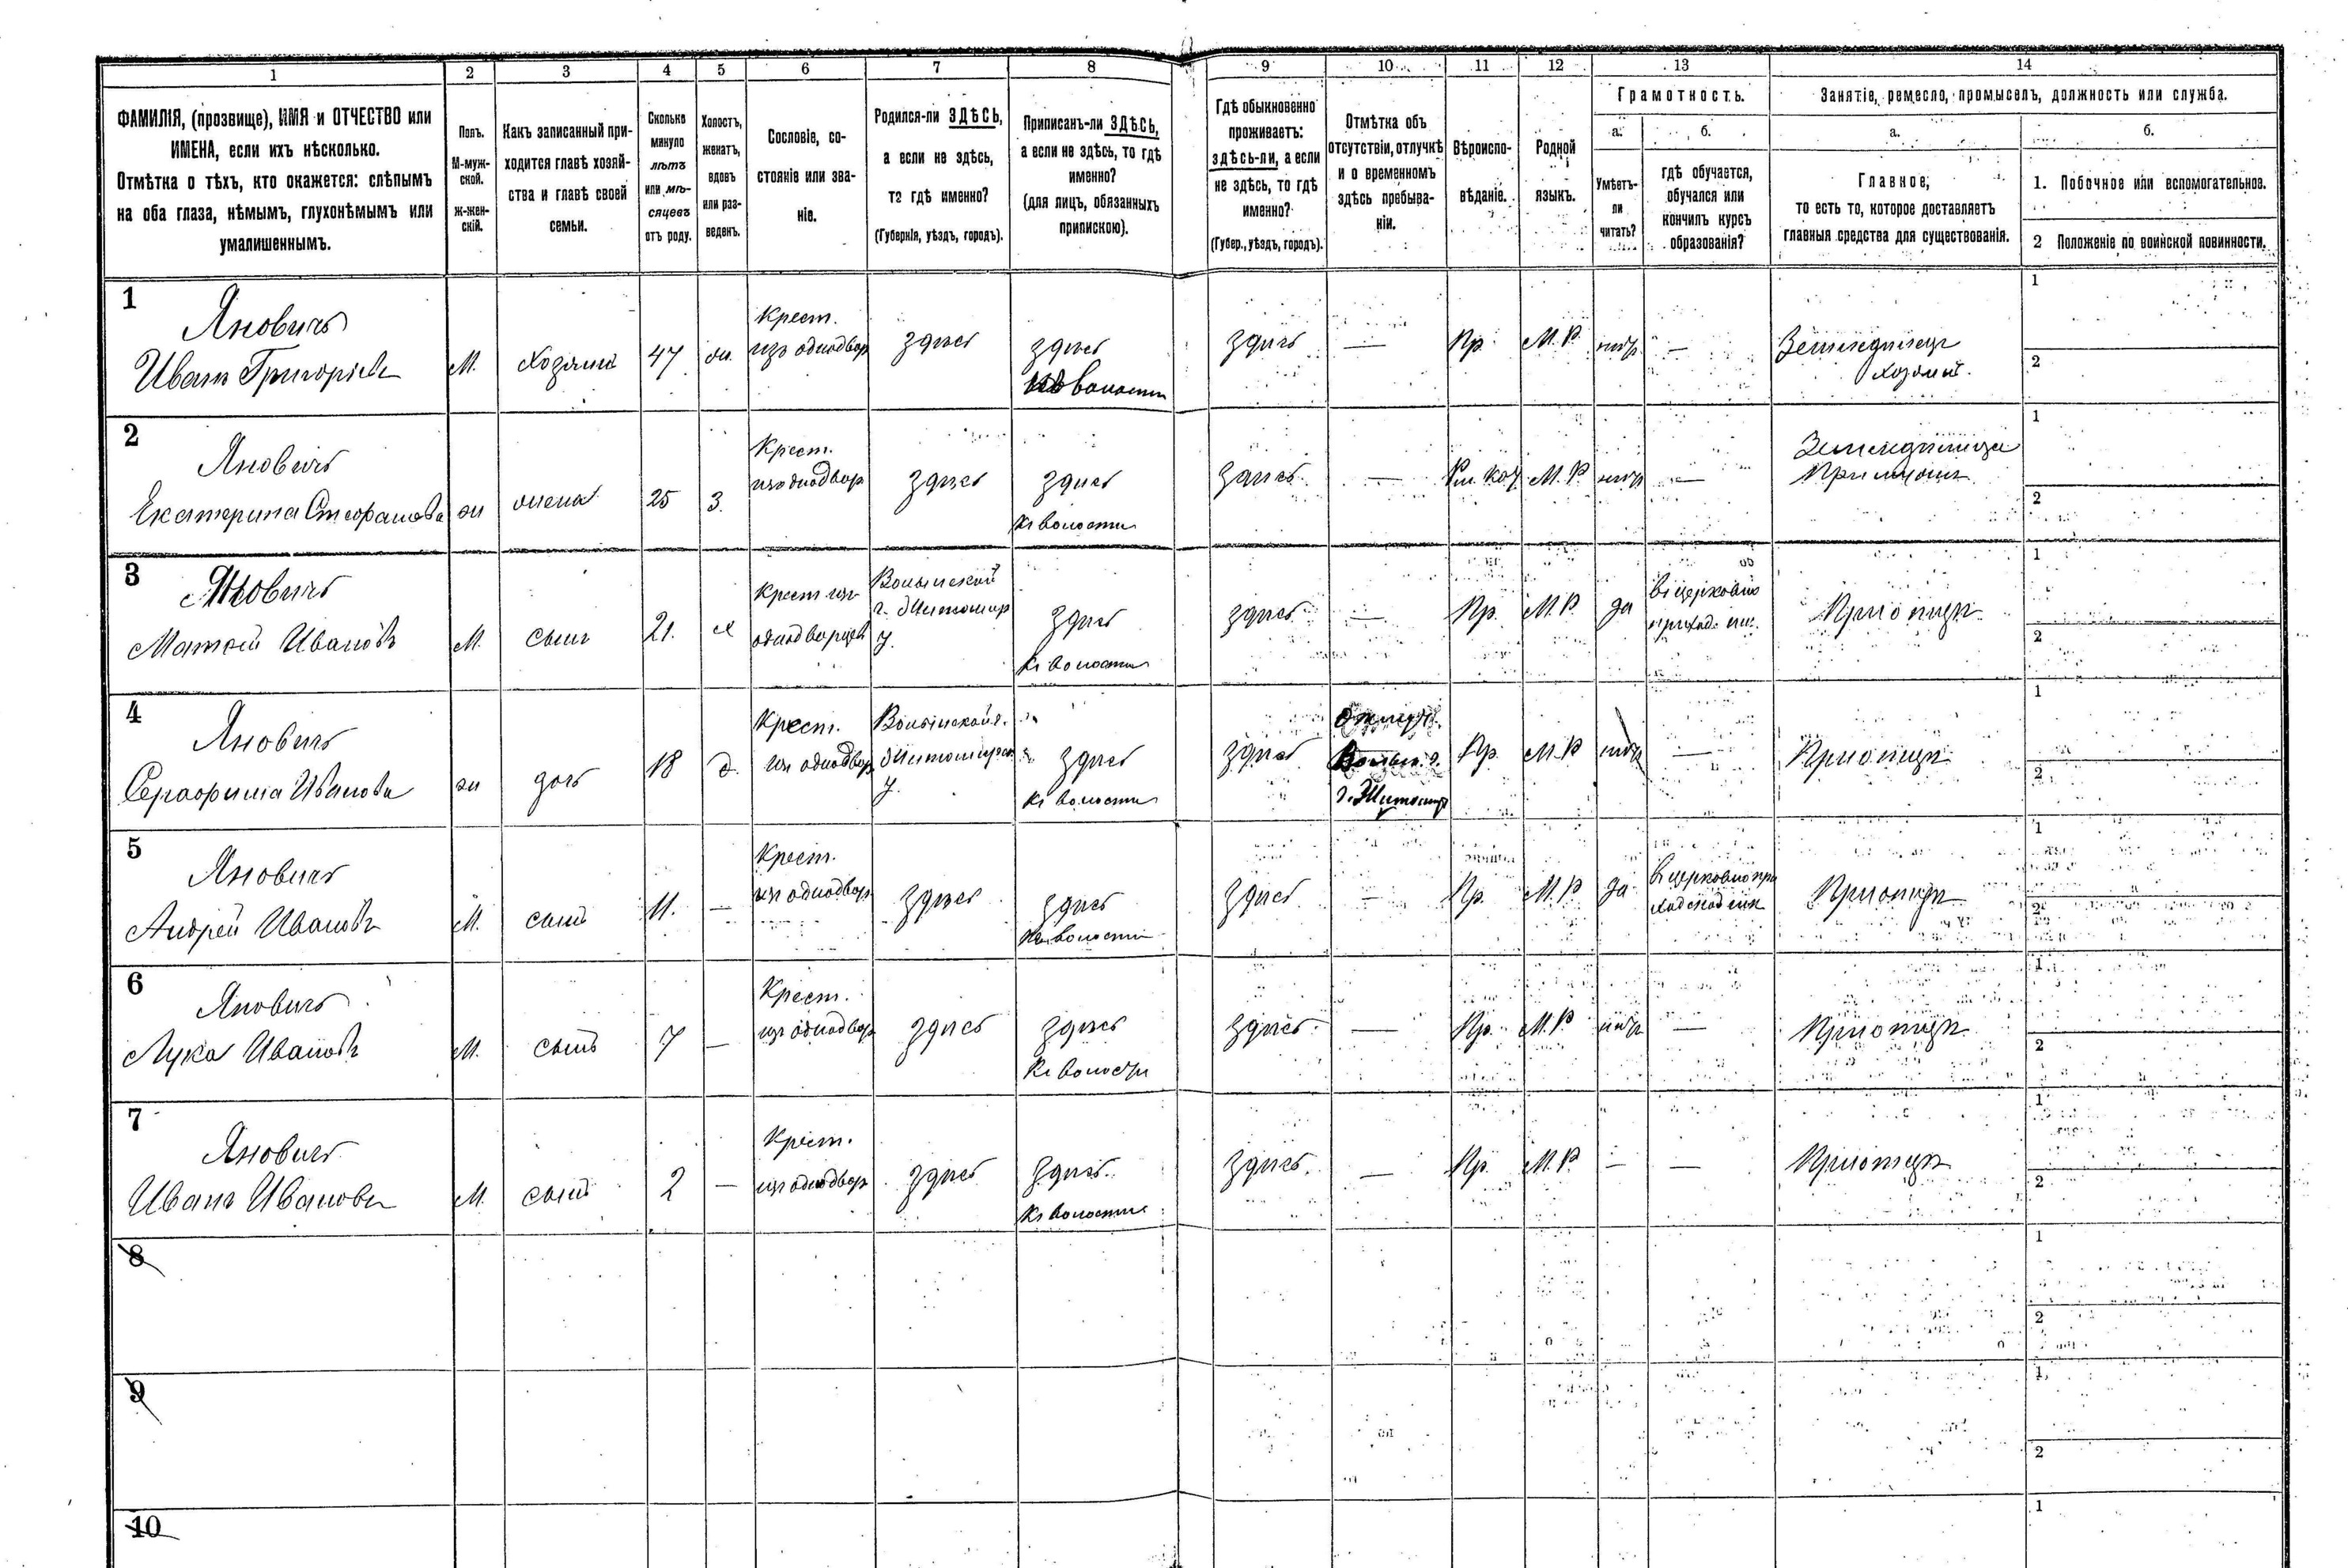 1 2 3 4 5 6 7 8 9 10 11 12 13 14
ФАМИЛІЯ, (прозвище), ИМЯ и ОТЧЕСТВО или
ИМЕНА, если ихъ нѣсколько.
Отмѣтка о тѣхъ, кто окажется: слѣпымъ
на оба глаза, нѣмымъ, глухонѣмымъ или
умалишеннымъ.
Полъ.
М-муж-
ской.
ж-жен-
скій.
Какъ записанный при-
ходится главѣ хозяй-
ства и главѣ своей
семьи.
Сколько
минуло
лѣтъ
или мѣ-
сяцевъ
отъ роду.
Холостъ,
женатъ,
вдовъ
или раз-
веденъ.
Сословіе, со-
стояніе или зва-
ніе.
Родился-ли ЗДѢСЬ,
а если не здѣсь,
то гдѣ именно?
(Губернія, уѣздъ, городъ).
Приписанъ-ли ЗДѢСЬ,
а если не здѣсь, то гдѣ
именно?
(для лицъ, обязанныхъ
припискою).
Гдѣ обыкновенно
проживаетъ:
здѣсь-ли, а если
не здѣсь, то гдѣ
именно?
(Губер., уѣздъ, городъ).
Отмѣтка объ
отсутствіи, отлучкѣ
и о временномъ
здѣсь пребыва-
ніи.
Вѣроиспо-
вѣданіе.
Родной
языкъ.
Грамотность.
а.
Умѣетъ-
ли
читать?
б.
гдѣ обучается,
обучался или
кончилъ курсъ
образованія?
Занятіе, ремесло, промыселъ, должность или служба.
а.
Главное,
то есть то, которое доставляетъ
главныя средства для существованія.
б.
1. Побочное или вспомогательное.
2 Положеніе по воинской повинности.
1
Яновичъ
Иванъ Григорьев
М.
хозяинъ
47
ж.
Крест.
изъ однодвор
здѣсь
здѣсь
волости
здѣсь
—
Пр.
М.Р.
нѣтъ
—
Земледѣлецъ
хозяинъ.
1
2
2
Яновичъ
Екатерина Стефанова
ж
жена
25
З.
Крест.
изъ однодвор
здѣсь
здѣсь
къ волости
здѣсь
—
Рим. Кат.
М.Р.
нѣтъ
—
Земледѣлица
При мужѣ
1
2
3
Яновичъ
Матѳей Ивановъ
М.
сынъ
21.
х
Крест изъ
однодворцевъ
Волынской
г. Житомир
у.
здѣсь
къ волости
здѣсь
—
Пр.
М.Р.
да
въ церковно
приход. шк.
При отцѣ
1
2
4
Яновичъ
Серафима Иванова
ж
дочь
18
д.
Крест.
изъ однодвор
Волынской г.
Житомирск
у.
здѣсь
къ волости
здѣсь
Волын. г.
г. Житомир
Пр.
М.Р
нѣтъ
—
При отцѣ
1
2
5
Яновичъ
Андрей Ивановъ
М.
сынъ
11.
—
Крест.
изъ однодвор
здѣсь
здѣсь
къ волости
здѣсь
—
Пр.
М.Р
да
въ церковнопри
ходской шк
При отцѣ
1
2
6
Яновичъ
Лука Ивановъ
М.
сынъ
7
—
Крест.
изъ однодвор
здѣсь
здѣсь
къ волости
здѣсь
—
Пр.
М.Р
нѣтъ
—
При отцѣ
1
2
7
Яновичъ
Иванъ Иванов
М.
сынъ
2
—
Крест.
изъ однодвор
здѣсь
здѣсь
къ волости
здѣсь.
—
Пр.
М.Р.
—
—
При отцѣ
1
2
8
1
2
9
1
2
10
1